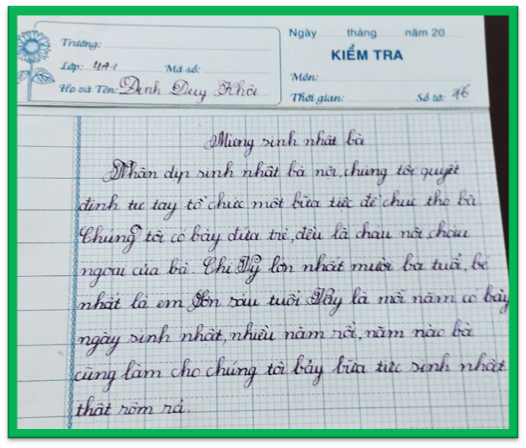 Trường:
Lớp: 4A1 Mã số:
Họ và Tên: Đinh Duy Khôi
Ngày tháng năm 20
KIỂM TRA
Môn:
Thời gian: Số tờ: 16
Mừng sinh nhật bà
Nhân dịp sinh nhật bà nội, chúng tôi quyết
định tự tay tổ chức một bữa tiệc để chúc thọ bà.
Chúng tôi có bảy đứa trẻ, đều là cháu nội, cháu
ngoại của bà. Chị Vy lớn nhất mười ba tuổi, bé
nhất là em Sơn sáu tuổi. Vậy là mỗi năm có bảy
ngày sinh nhật, nhiều năm rồi, năm nào bà
cũng làm cho chúng tôi bảy bữa tiệc sinh nhật
thật rôm rả.